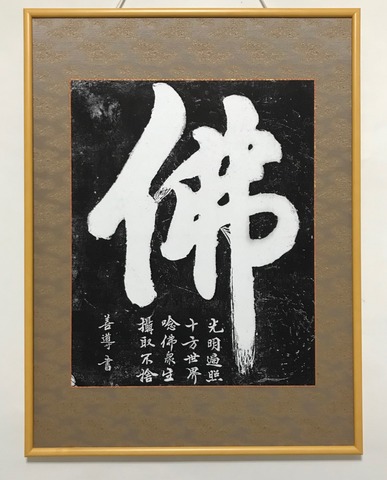 佛
光明遍照
十方世界
唸佛眾生
攝取不捨
善導書